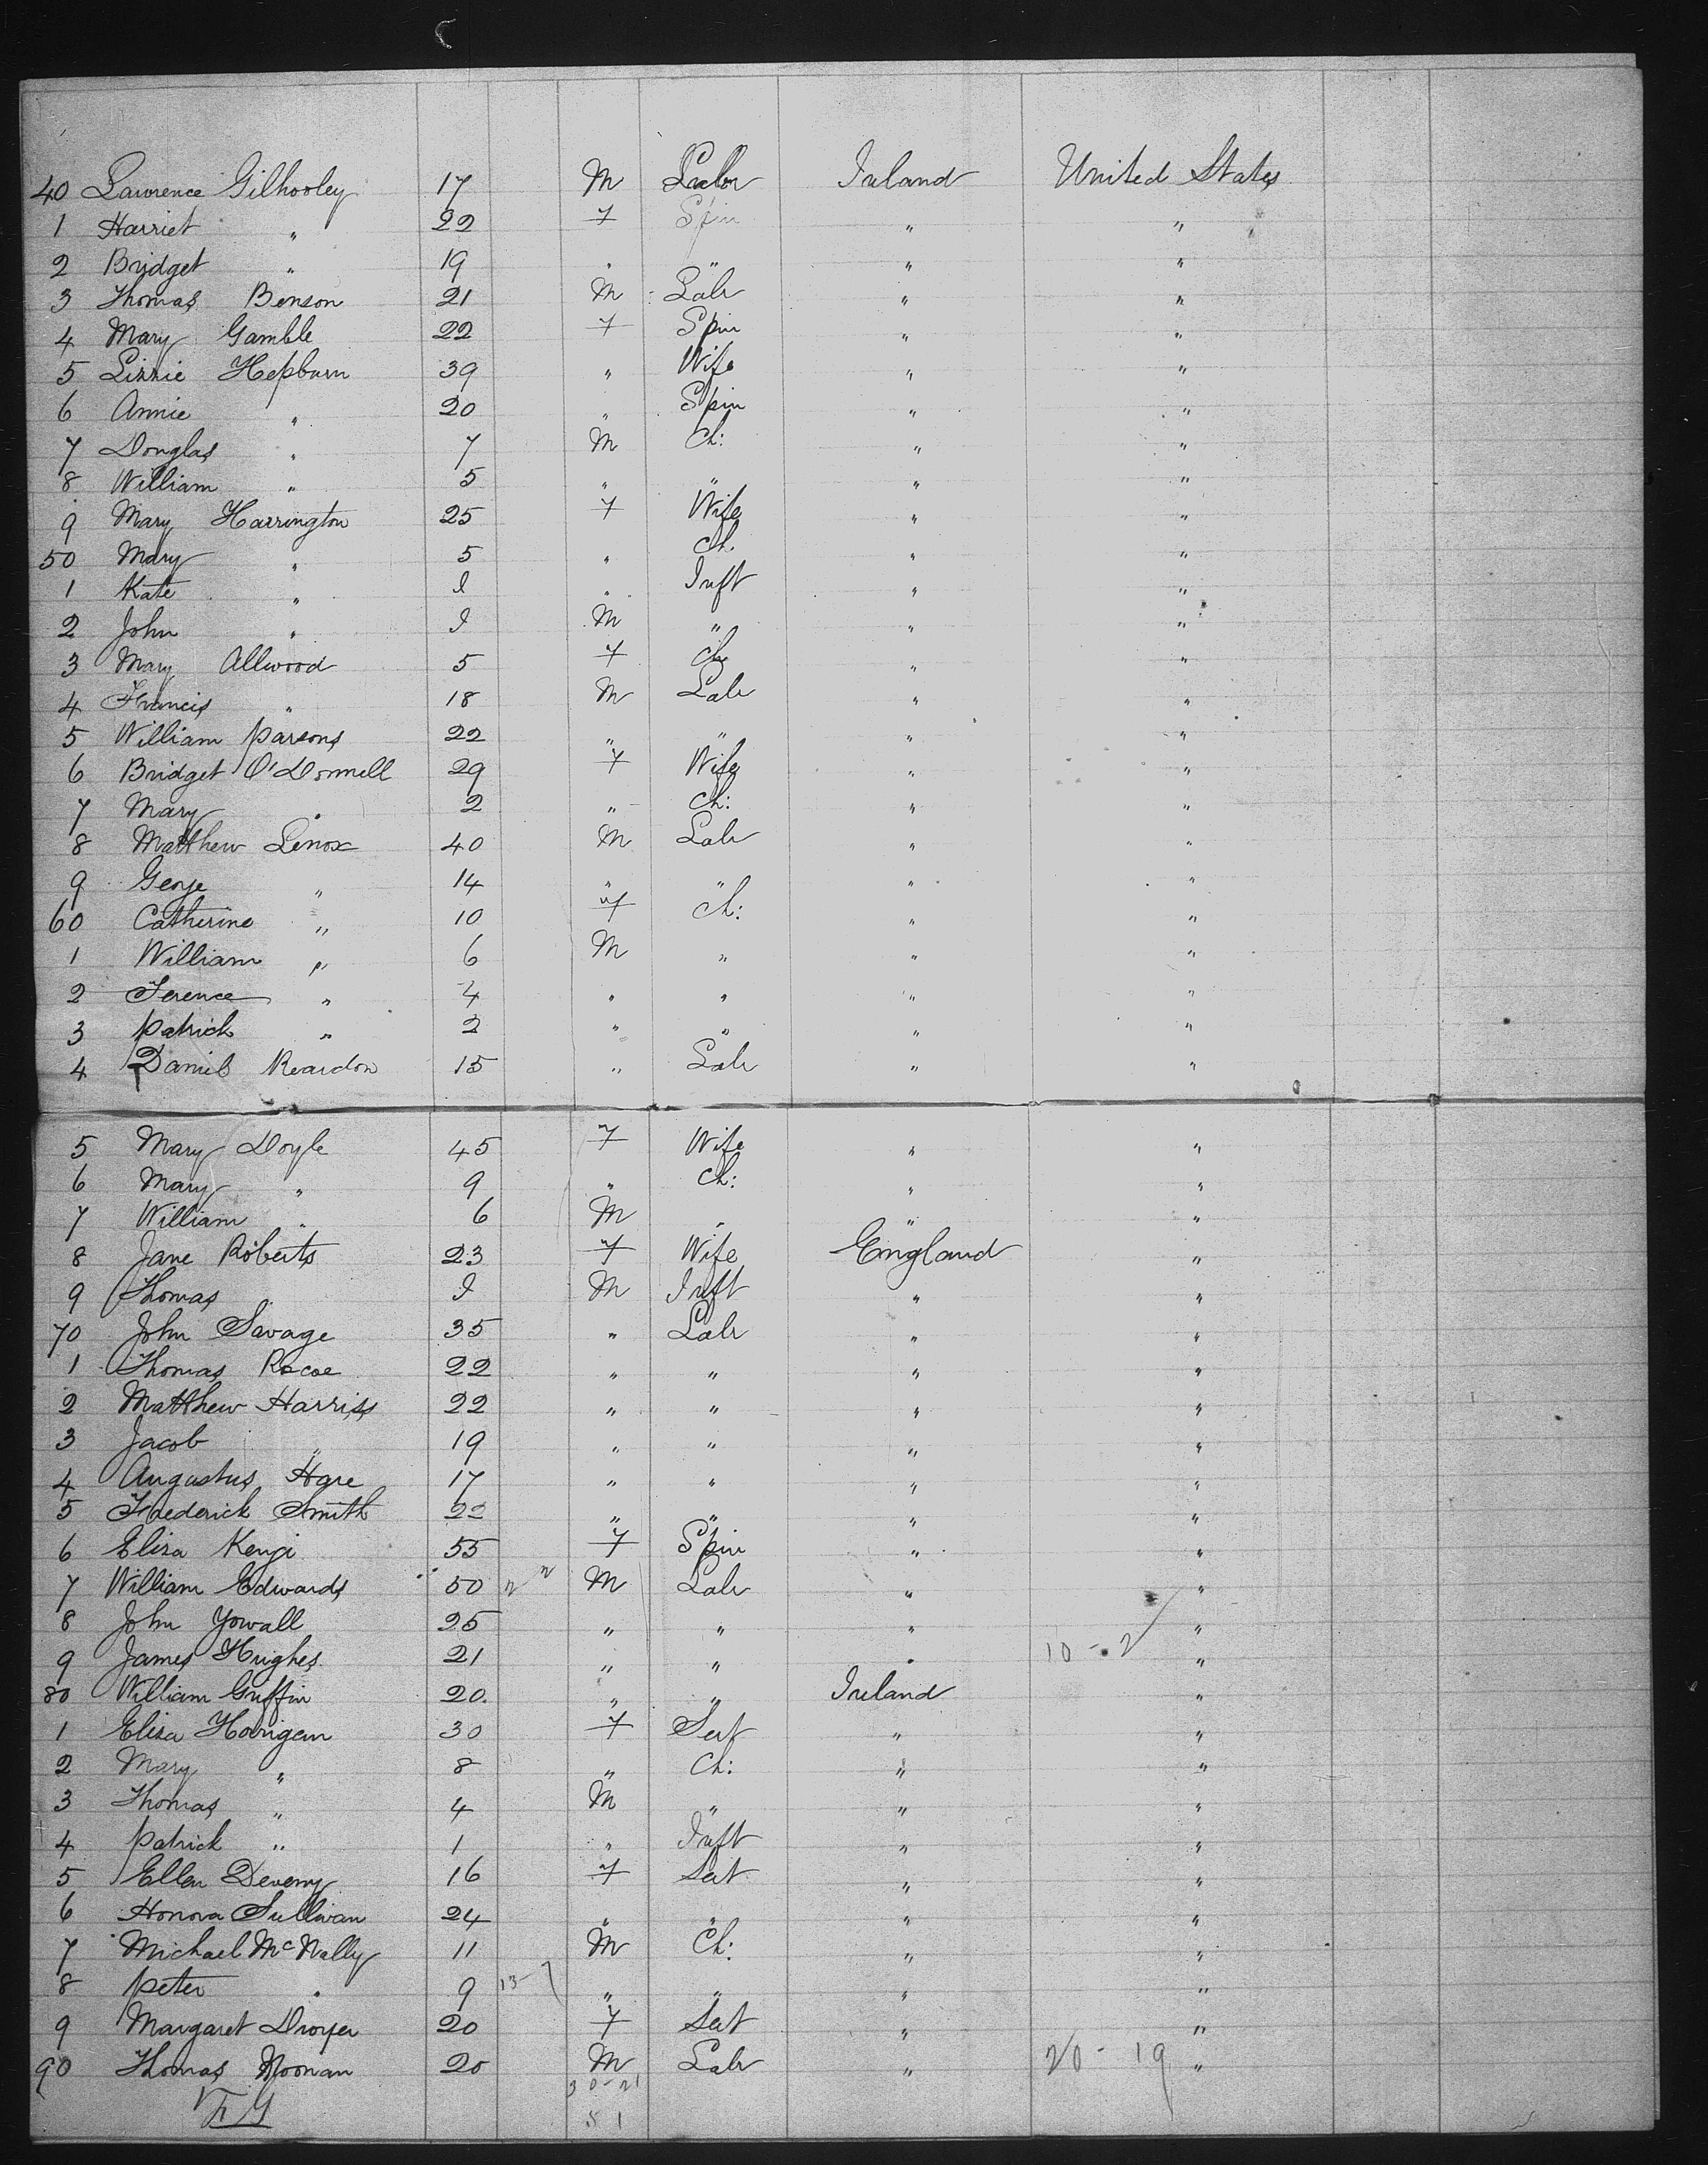 40 Lawrence Gilhooley 17 M Labr Ireland United States
1 Harriet " 22 F Spin " "
2 Bridget " 19 " " " "
3 Thomas Benson 21 M Labr " "
4 Mary Gamble 22 F Spin " "
5 Lizzie Hepburn 39 " Wife " "
6 Annie " 20 " Spin " "
7 Douglas " 7 M Ch: " "
8 William " 5 " " " "
9 Mary Harrington 25 F Wife " "
50 Mary " 5 " Ch. " "
1 Kate " I " Inft " "
2 John " I M " " "
3 Mary Allwood 5 F Ch " "
4 Francis " 18 M Labr " "
5 William Parsons 22 " " " "
6 Bridget O'Donnell 29 F Wife " "
7 Mary " 2 " Ch: " "
8 Matthew Lenox 40 M Labr " "
9 George " 14 " " " "
60 Catherine " 10 F Ch: " "
1 William " 6 M " " "
2 Terence " 4 " " " "
3 Patrick " 2 " " " "
4 Daniel Reardon 15 " Labr " "
5 Mary Doyle 45 F Wife " "
6 Mary " 9 " Ch: " "
7 William " 6 M " " "
8 Jane Roberts 23 F Wife England "
9 Thomas I M Inft " "
70 John Savage 35 " Labr " "
1 Thomas Rocoe 22 " " " "
2 Matthew Harriss 22 " " " "
3 Jacob " 19 " " " "
4 Augustus Hare 17 " " " "
5 Frederick Smith 22 " " " "
6 Eliza 55 F Spin " "
7 William Edwards 50 M Labr " "
8 John Yowall 25 " " " "
9 James Hughes 21 " " " 10 - 2 "
80 William Griffin 20 " " Ireland "
1 Eliza Horrigan 30 F Sert " "
2 Mary " 8 " Ch: " "
3 Thomas " 4 M " " "
4 Patrick " 1 " Inft " "
5 Ellen Deveny 16 F Sert " "
6 Honora Sullivan 24 " " " "
7 Michael McNally 11 M Ch: " "
8 Peter " 9 13-7 " " " "
9 Margaret Dwyer 20 F Sert " "
90 Thomas Noonan 20 M Labr " 20 - 19 "
30-21
51